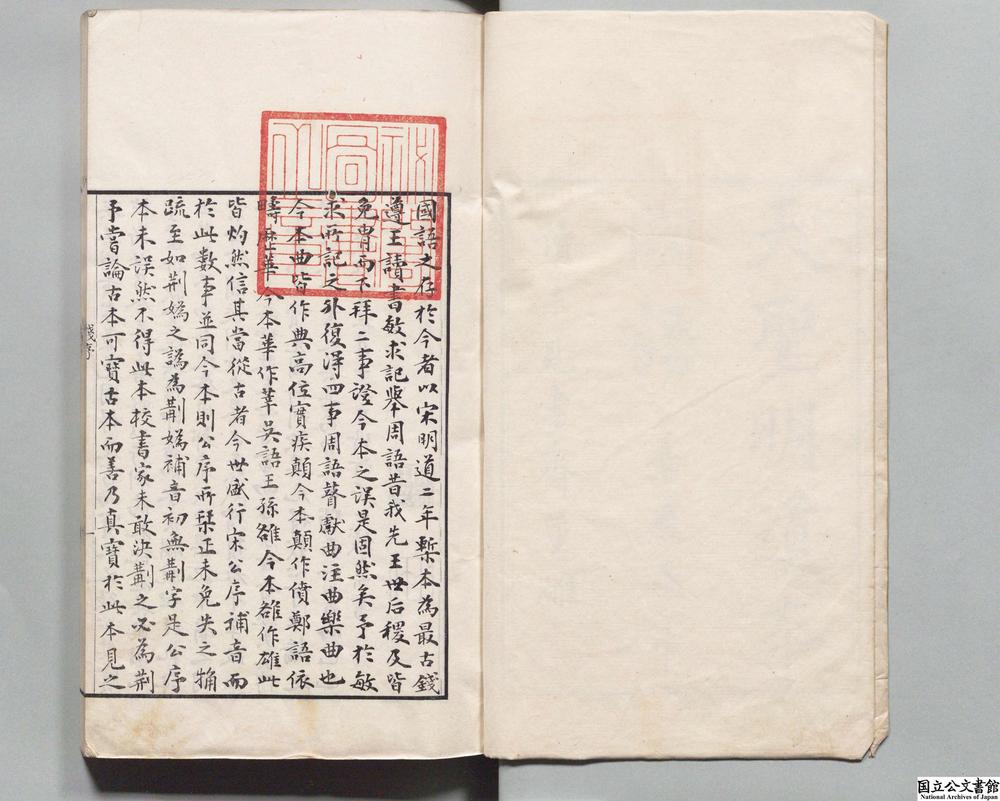 國語之存於今者以宋明道二年槧本為最古錢
遵王讀書敏求記舉周語昔我先王世后稷及皆
免胄而下拜二事證今本之誤是固然矣予於敏
求所記之外復得四事周語瞽獻曲注曲樂曲也
今本曲皆作典高位寔疾顛今本顛作僨鄭語依
疇歷華今本華作莘吳語王孫雒今本雒作雄此
皆灼然信其當從古者今世盛行宋公序補音而
於此數事並同今本則公序所栞正未免失之觕
疏至如荆媯之譌為羋媯補音初無羋字是公序
本未誤然不得此本校書家未敢決羋之必為荆
予嘗論古本可寶古本而善乃真寶於此本見之
錢序
一
国立公文書館
National Archives of Japan